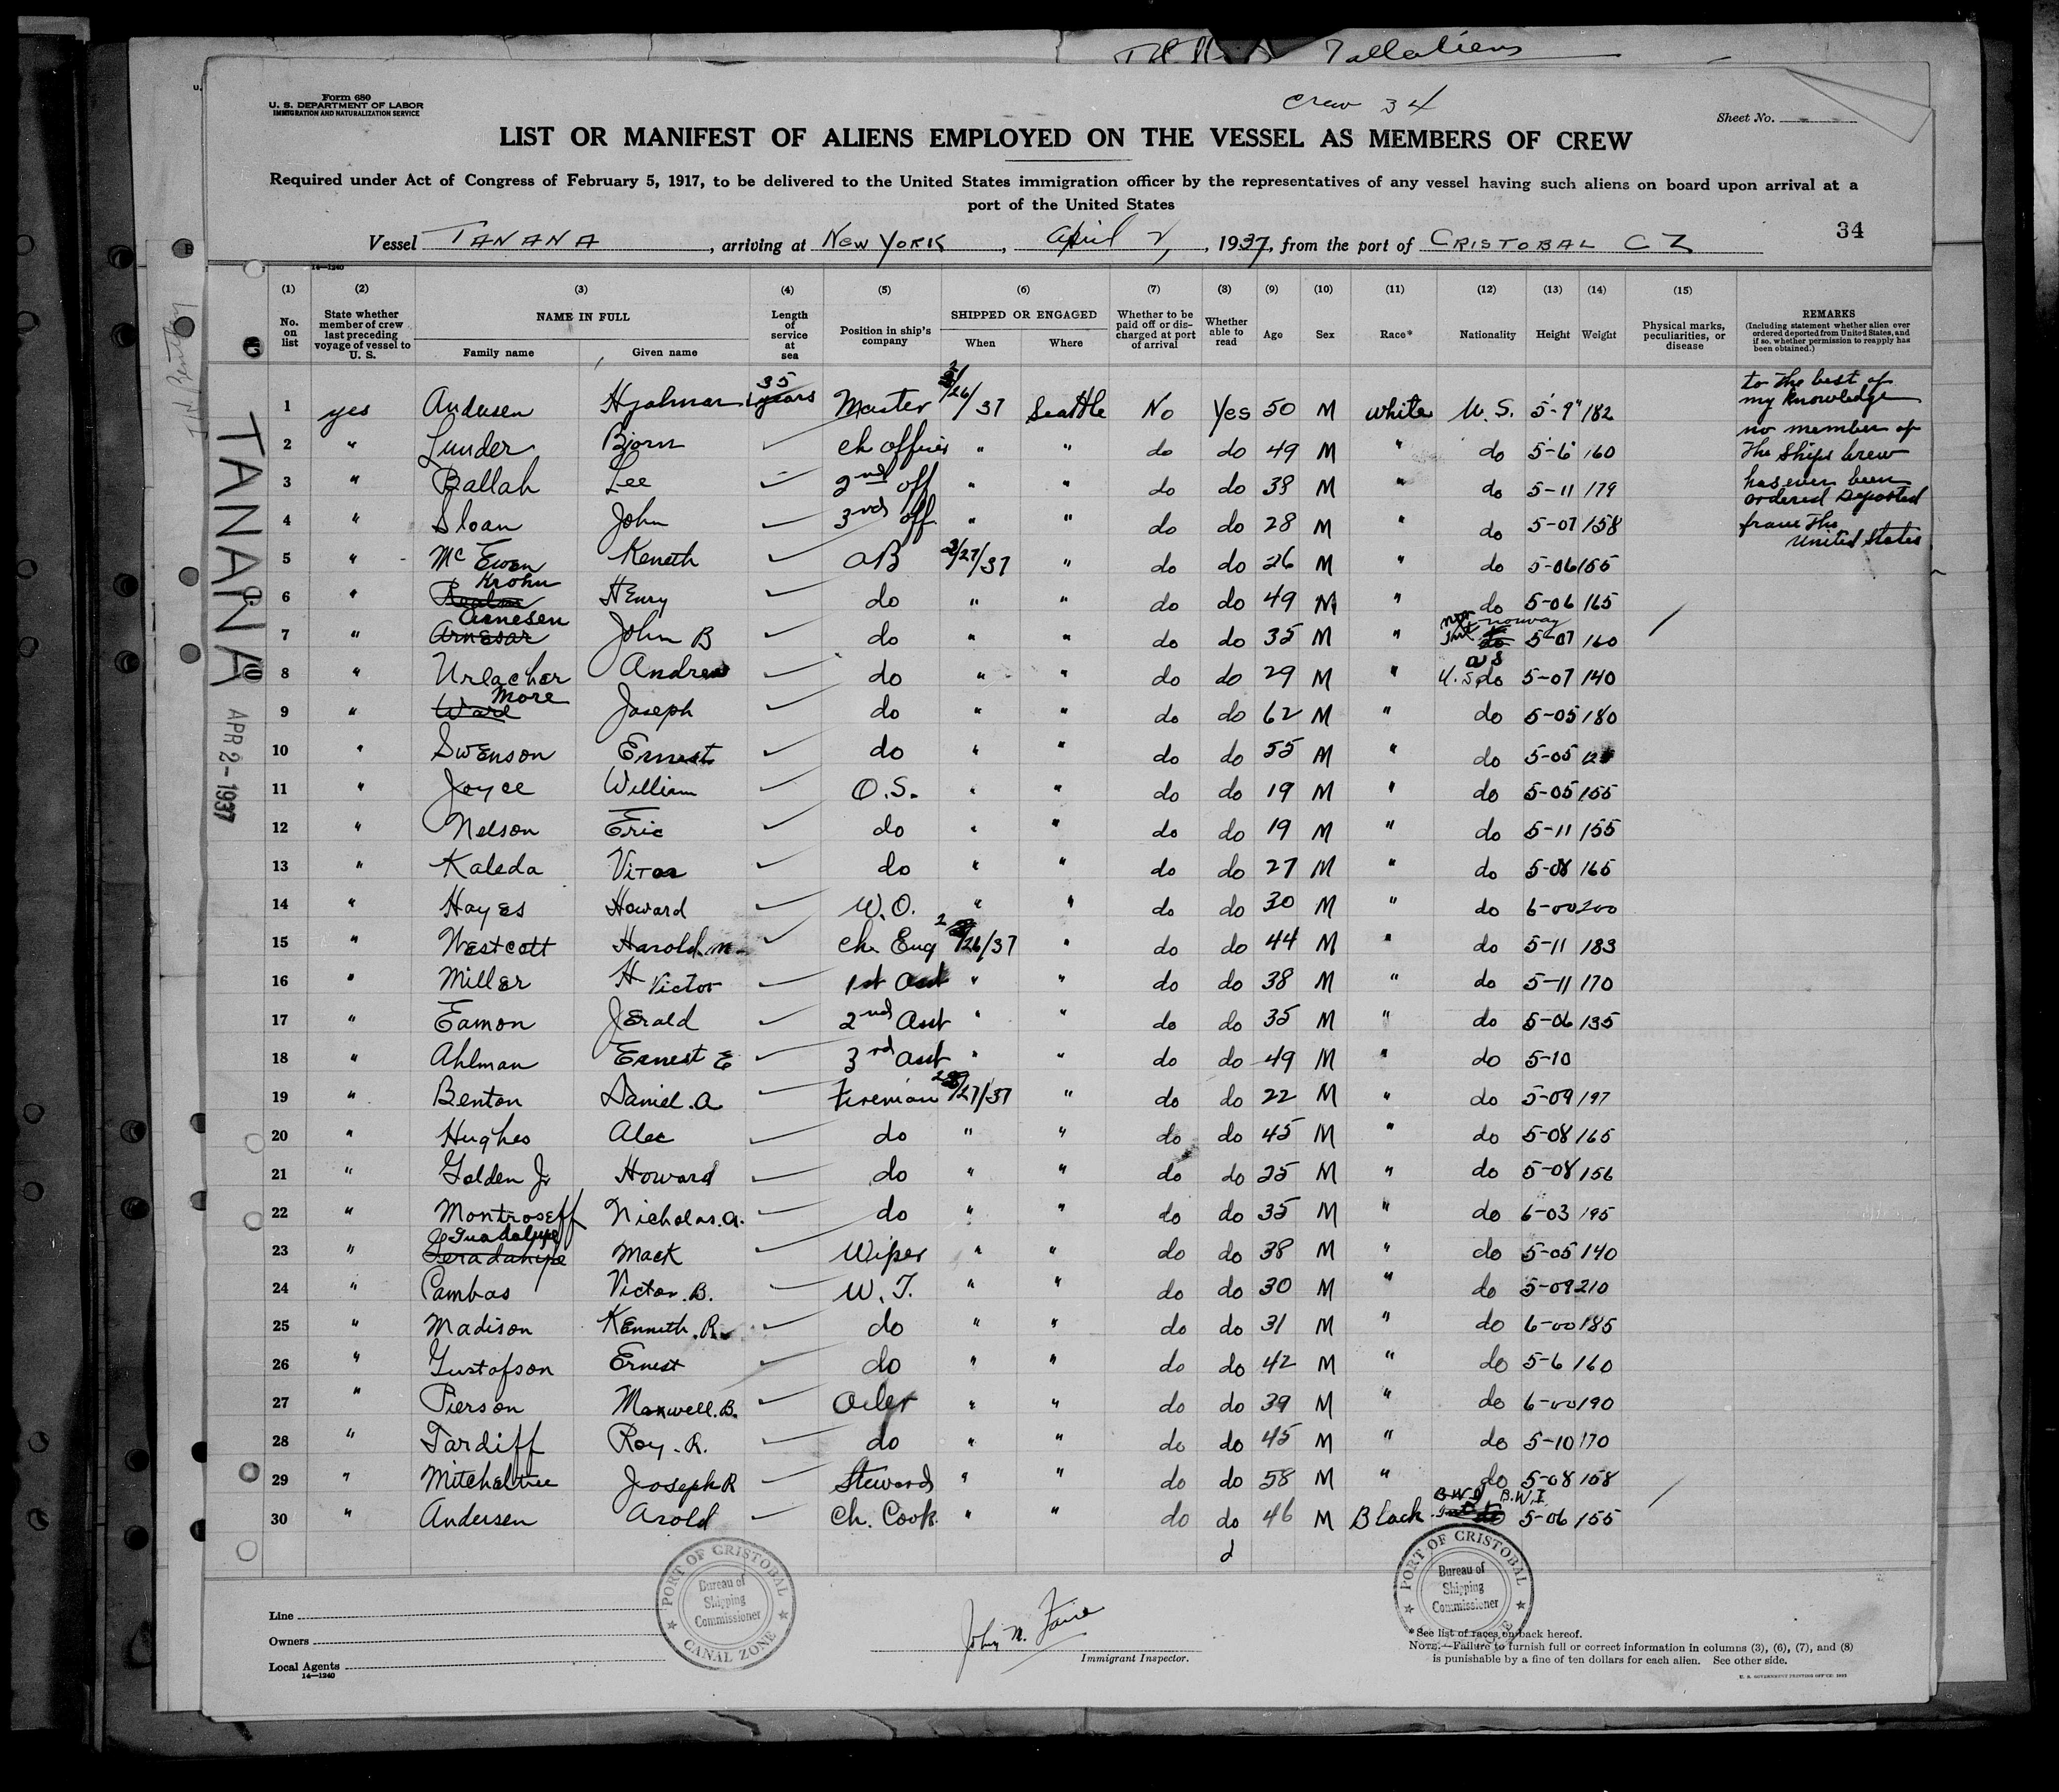 Tallaliens
crew 34
Form 680
U. S. DEPARTMENT OF LABOR
IMMIGRATION AND NATURALIZATION SERVICE
Sheet No.
LIST OR MANIFEST OF ALIENS EMPLOYED ON THE VESSEL AS MEMBERS OF CREW
Required under Act of Congress of February 5, 1917, to be delivered to the United States immigration officer by the representatives of any vessel having such aliens on board upon arrival at a
port of the United States
34
Vessel TANANA, arriving at NEW YORK, April 2, 1937, from the port of CRISTOBAL C Z
14—1240
(1) (2) (3) (4) (5) (6) (7) (8) (9) (10) (11) (12) (13) (14) (15)
No. on list State whether member of crew last preceding voyage of vessel to U. S. NAME IN FULL Family name Given name Length of service at sea Position in ship's company SHIPPED OR ENGAGED When Where Whether to be paid off or discharged at port of arrival Whether able to read Age Sex Race* Nationality Height Weight Physical marks, peculiarities, or disease REMARKS (Including statement whether alien ever ordered deported from United States, and if so, whether permission to reapply has been obtained.)
1 yes Andersen Hjalmar 35 years Master 2/26/37 Seattle No Yes 50 M white U. S. 5-9" 182
to the best of
my knowledge
no member of
The Ships crew
has ever been
ordered Deported
from The
United States
2 " Lunder Bjorn ch officer " " do do 49 M " do 5-6 160
3 " Ballah Lee 2nd off " " do do 38 M " do 5-11 179
4 " Sloan John 3rd off " " do do 28 M " do 5-07 158
5 " Mc Ewen Keneth AB 2/27/37 " do do 26 M " do 5-06 155
6 " Krohn Henry do " " do do 49 M " do 5-06 165
7 " Arnesar Arnesen John B do " " do do 35 M " norway do 5-07 160
8 " Urlacher Andrew do " " do do 29 M " U.S. do 5-07 140
9 " Ward More Joseph do " " do do 62 M " do 5-05 180
10 " Swenson Ernest do " " do do 55 M " do 5-05
11 " Joyce William O.S. " " do do 19 M " do 5-05 155
12 " Nelson Eric do " " do do 19 M " do 5-11 155
13 " Kaleda Vitor do " " do do 27 M " do 5-08 165
14 " Hayes Howard W.O. " " do do 30 M " do 6-00 200
15 " Westcott Harold. M ch. Eng 2/26/37 " do do 44 M " do 5-11 183
16 " Miller H Victor 1st Asst " " do do 38 M " do 5-11 170
17 " Eamon Jerald 2nd Asst " " do do 35 M " do 5-06 135
18 " Ahlman Ernest E 3rd asst " " do do 49 M " do 5-10
19 " Benton Daniel. A Fireman 2/27/37 " do do 22 M " do 5-09 197
20 " Hughes Alec do " " do do 45 M " do 5-08 165
21 " Golden Jr Howard do " " do do 25 M " do 5-08 156
22 " Montroseff Nicholas. A. do " " do do 35 M " do 6-03 195
23 " Guadalupe Mack Wiper " " do do 38 M " do 5-05 140
24 " Cambas Victor. B. W. T. " " do do 30 M " do 5-09 210
25 " Madison Kenneth. R. do " " do do 31 M " do 6-00 185
26 " Gustafson Ernest do " " do do 42 M " do 5-6 160
27 " Pierson Maxwell. B. Oiler " " do do 39 M " do 6-00 190
28 " Tardiff Roy. R. do " " do do 45 M " do 5-10 170
29 " Mitcheltree Joseph R Steward " " do do 58 M " do 5-08 158
30 " Andersen Arold Ch. Cook " " do do 46 M Black B.W.I. 5-06 155
d
TANANA
APR 2-1937
PORT OF CRISTOBAL
Bureau of
Shipping
Commissioner
CANAL ZONE
PORT OF CRISTOBAL
Bureau of
Shipping
Commissioner
Line
Owners
Local Agents
14—1240
Immigrant Inspector.
*See list of races on back hereof.
NOTE.—Failure to furnish full or correct information in columns (3), (6), (7), and (8)
is punishable by a fine of ten dollars for each alien. See other side.